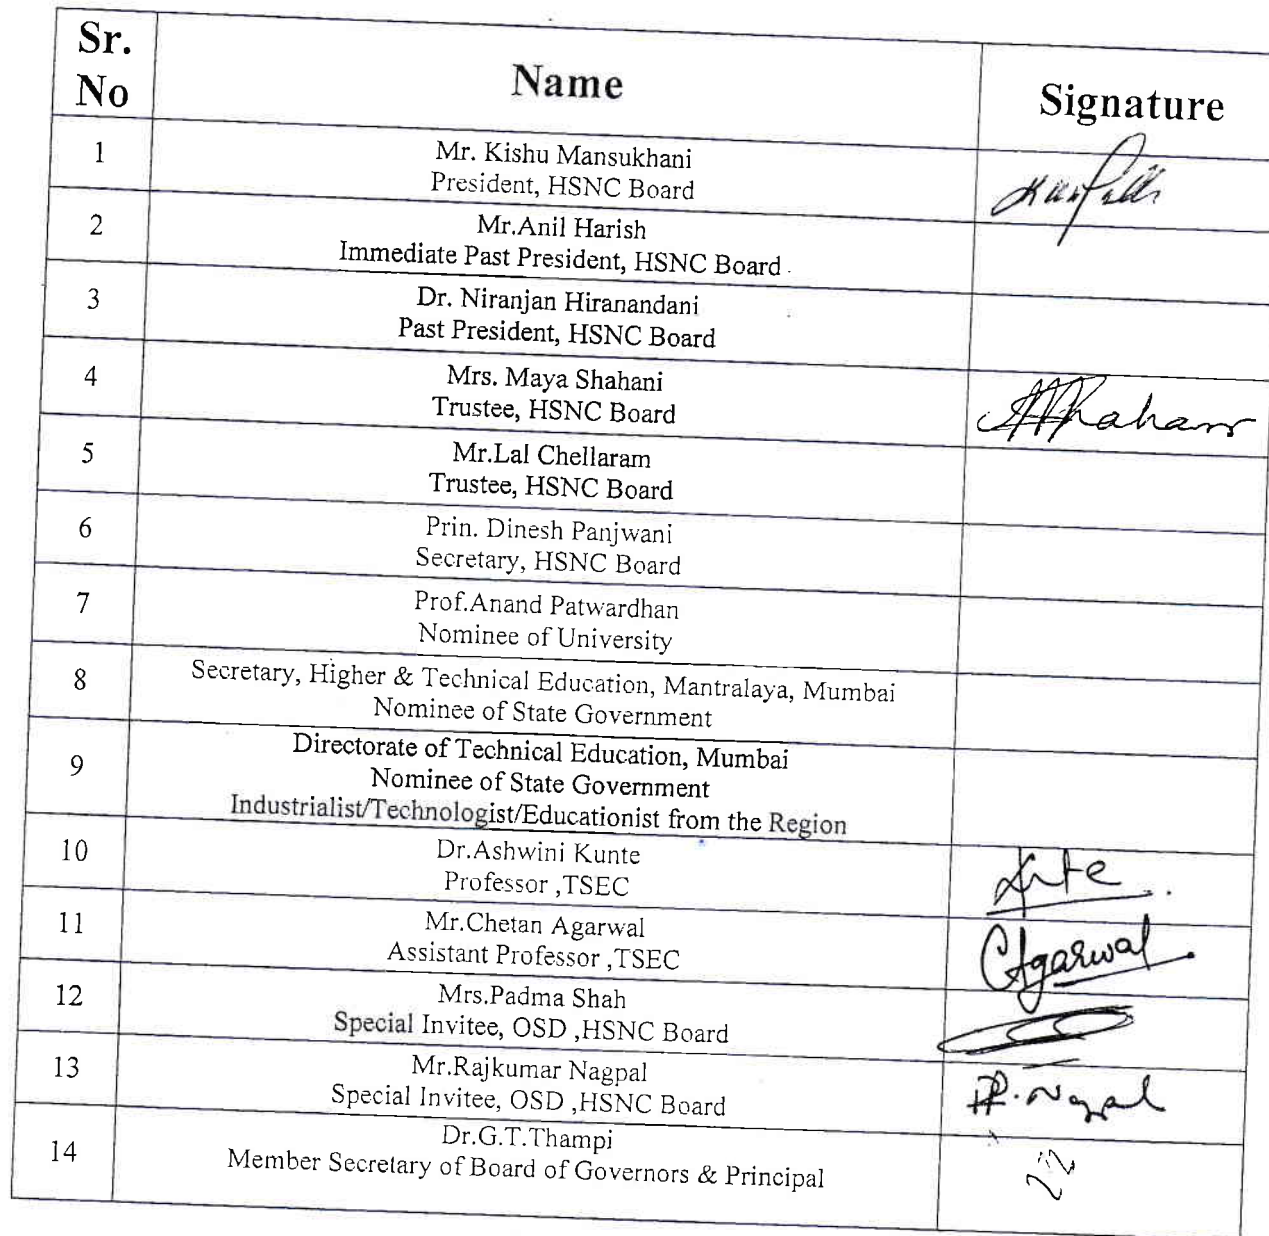 Sr.
No
Name
Signature
1
Mr. Kishu Mansukhani
President, HSNC Board
2
Mr.Anil Harish
Immediate Past President, HSNC Board
3
Dr. Niranjan Hiranandani
Past President, HSNC Board
4
Mrs. Maya Shahani
Trustee, HSNC Board
5
Mr.Lal Chellaram
Trustee, HSNC Board
6
Prin. Dinesh Panjwani
Secretary, HSNC Board
7
Prof.Anand Patwardhan
Nominee of University
8
Secretary, Higher & Technical Education, Mantralaya, Mumbai
Nominee of State Government
9
Directorate of Technical Education, Mumbai
Nominee of State Government
Industrialist/Technologist/Educationist from the Region
10
Dr.Ashwini Kunte
Professor ,TSEC
11
Mr.Chetan Agarwal
Assistant Professor ,TSEC
CAgarwal
12
Mrs.Padma Shah
Special Invitee, OSD ,HSNC Board
13
Mr.Rajkumar Nagpal
Special Invitee, OSD ,HSNC Board
R. Nagpal
14
Dr.G.T.Thampi
Member Secretary of Board of Governors & Principal